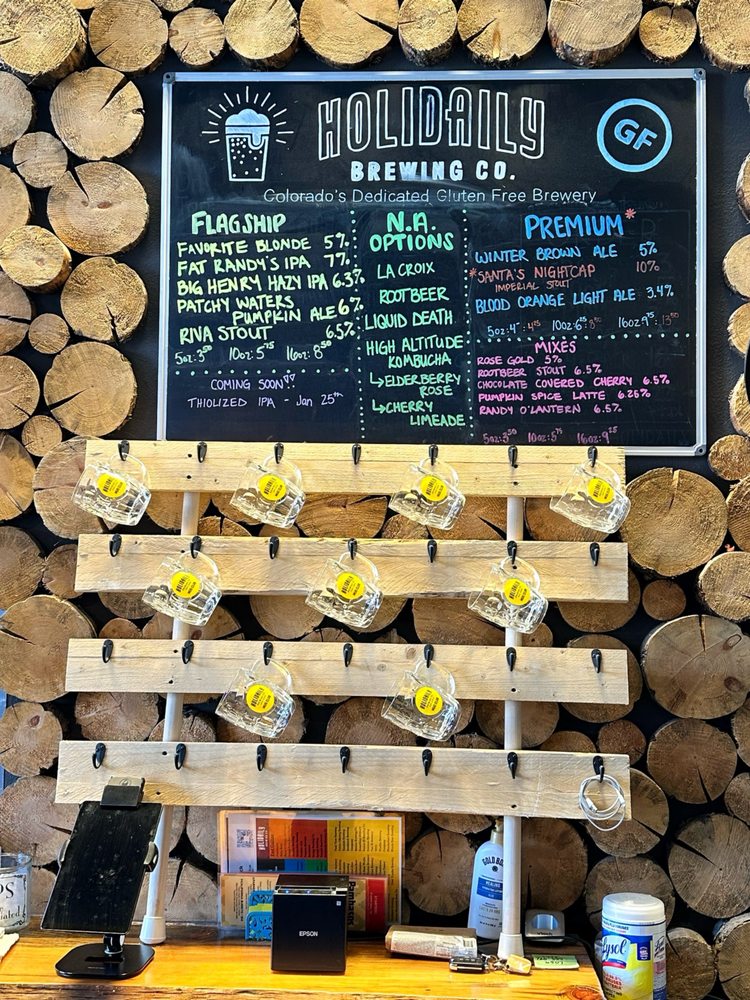 HOLIDAILY
BREWING CO.
Colorado's Dedicated Gluten Free Brewery
GF
FLAGSHIP
FAVORITE BLONDE 5%
FAT RANDY'S IPA 7%
BIG HENRY HAZY IPA 6.3%
PATCHY WATERS
PUMPKIN ALE 6%
RIVA STOUT 6.5%
5oz: 3.50 10oz: 5.75 16oz: 8.50
COMING SOON!!
THIOLIZED IPA - Jan 25th
N.A.
OPTIONS
LA CROIX
ROOTBEER
LIQUID DEATH
HIGH ALTITUDE
KOMBUCHA
↳ELDERBERRY
ROSE
↳CHERRY
LIMEADE
PREMIUM*
WINTER BROWN ALE 5%
*SANTA'S NIGHTCAP 10%
IMPERIAL STOUT
BLOOD ORANGE LIGHT ALE 3.4%
5oz: 4 10oz: 6 16oz: 9
MIXES
ROSE GOLD 5%
ROOTBEER STOUT 6.5%
CHOCOLATE COVERED CHERRY 6.5%
PUMPKIN SPICE LATTE 6.25%
RANDY O'LANTERN 6.5%
5oz: 3.50 10oz: 5.75 16oz: 9.25
HOLIDAILY
EPSON
GOLD BOND
HEALING
Lysol